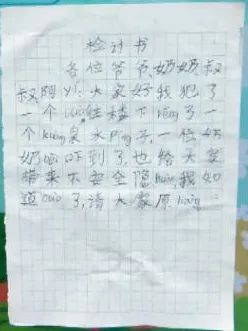 检讨书
各位爷爷、奶奶、叔
叔阿yí:大家好我犯了
一个cuò往楼下rēng了一
个kuàng泉水píng子,一位奶
奶吓到了,也给大家
带来不安全隐huàn我知
道cuò了,请大家原liàng